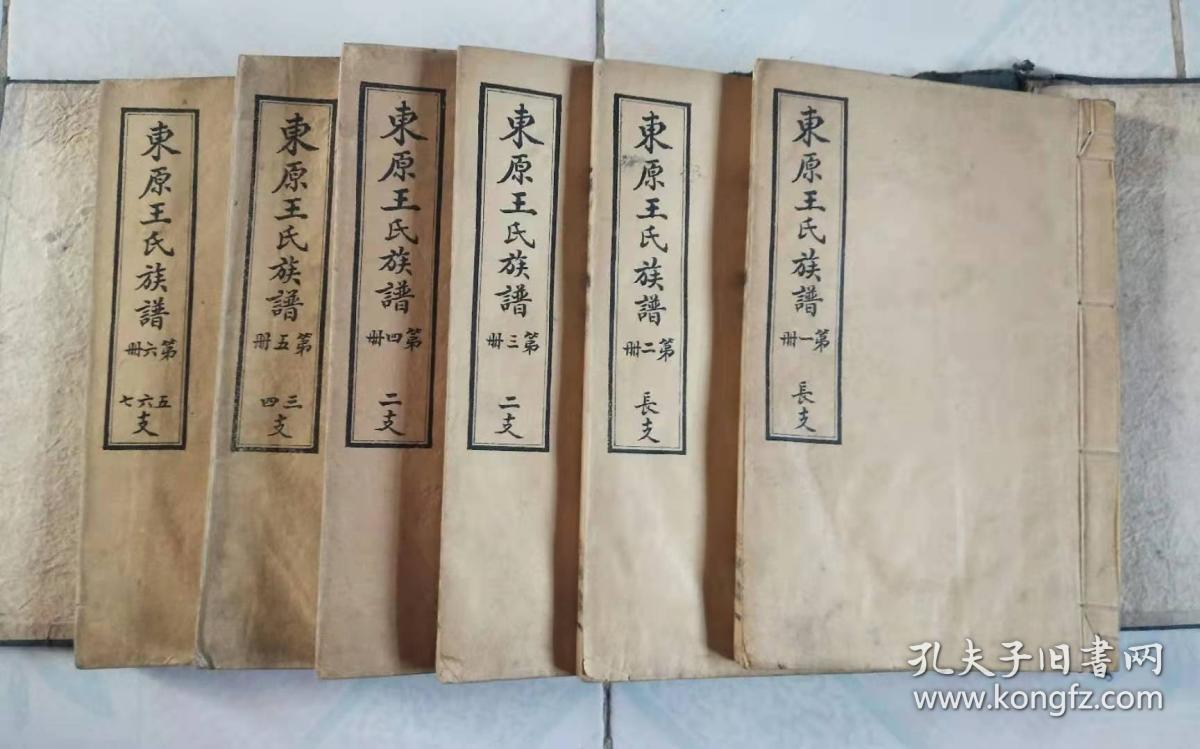 東原王氏族譜
第一冊
長支
東原王氏族譜
第二冊
長支
東原王氏族譜
第三冊
二支
東原王氏族譜
第四冊
二支
東原王氏族譜
第五冊
三四支
東原王氏族譜
第六冊
五六七支
孔夫子旧書网
www.kongfz.com